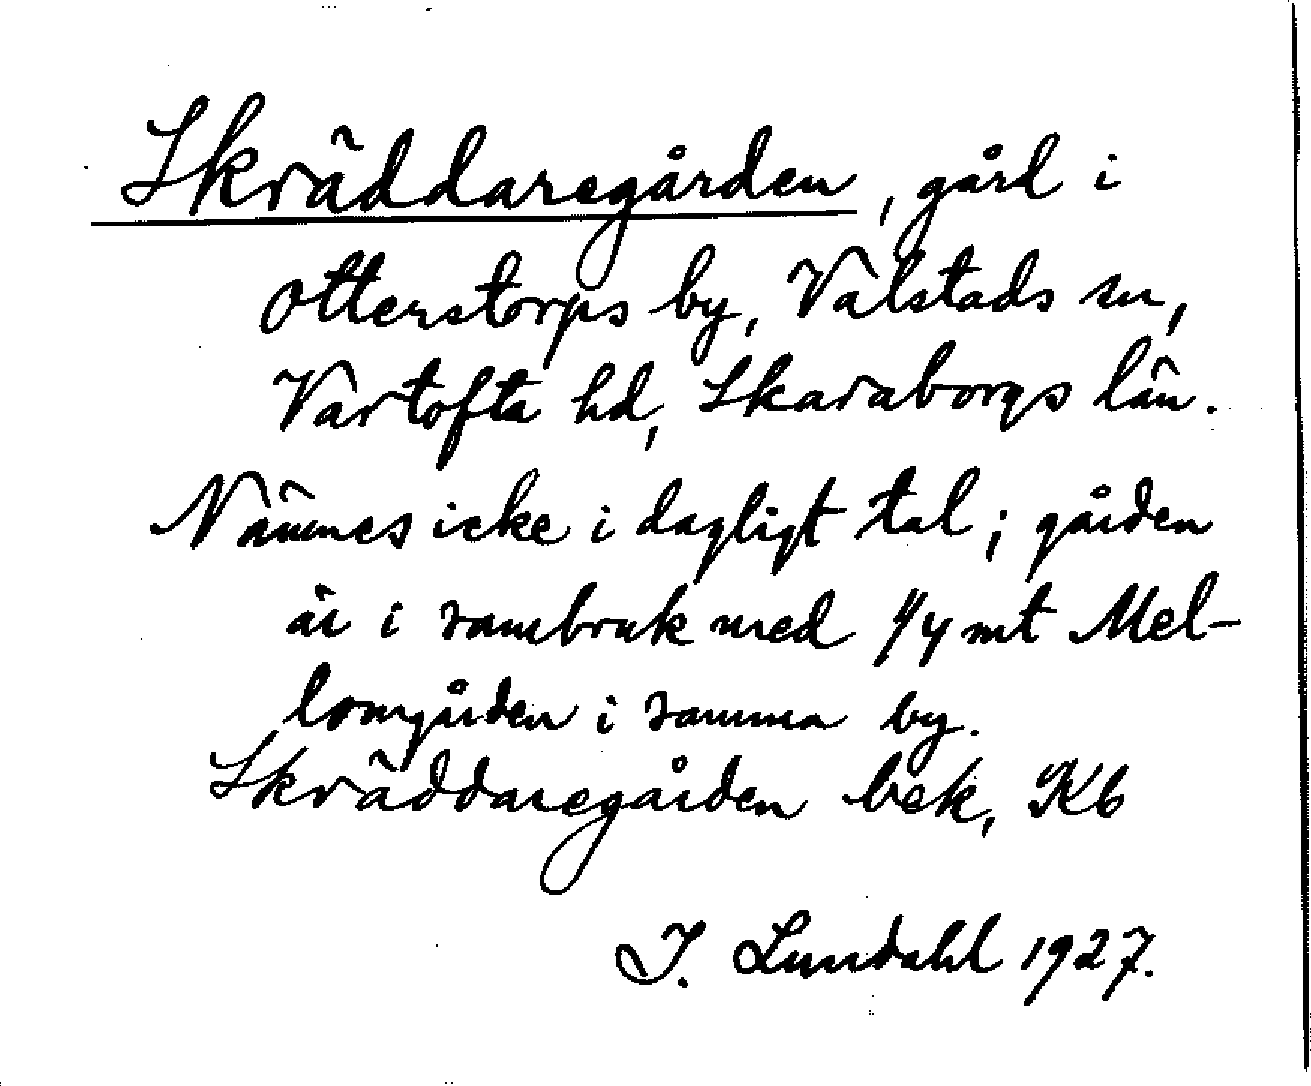 Skräddaregården, gård i
Otterstorps by, Valstads sn,
Vartofta hd, Skaraborgs län.
Nämnes icke i dagligt tal; gården
är i sambruk med 1/4 mt Mel-
lomgården i samma by.
Skräddaregården bek, Kb
I. Lundahl 1927.